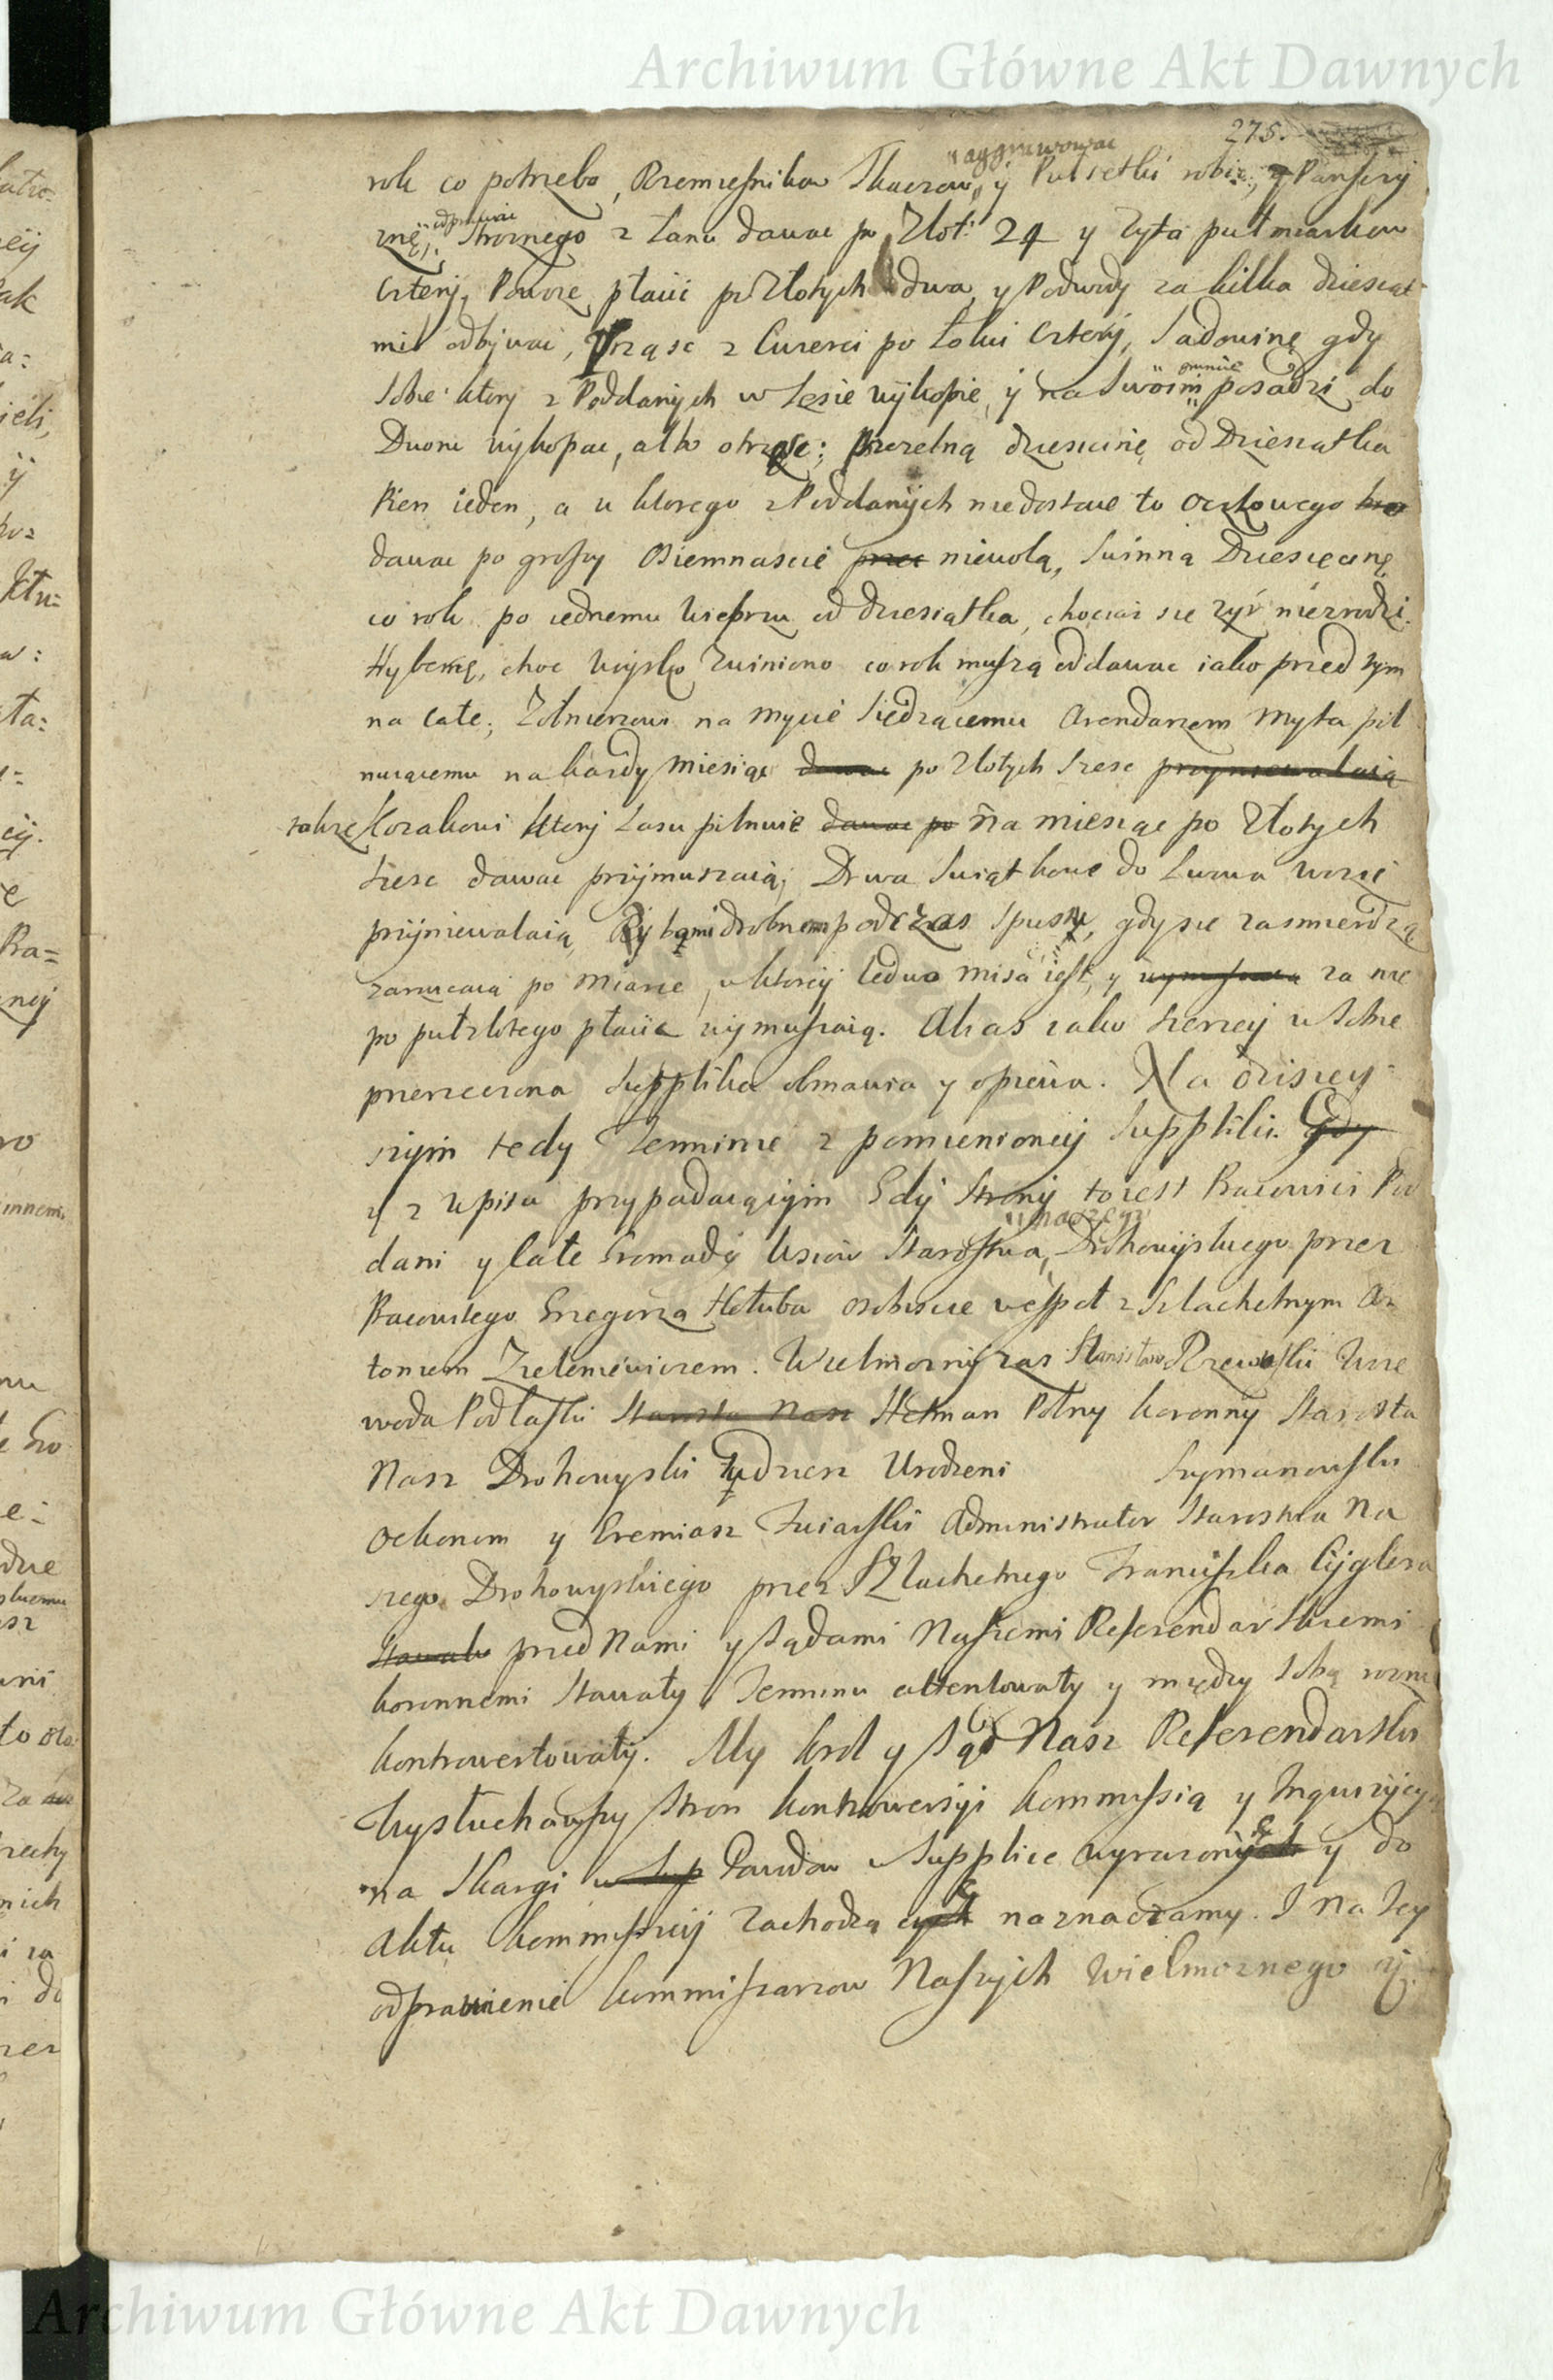 Archiwum Główne Akt Dawnych
275.
rok co potrzeba, Rzemiesnikow Tkaczow, y Pułsetki robić, y Panszczy
znę, odprawiać Stroznego z Łanu dawac po Złot: 24 y zyta pułmiarkow
cztery, Powoz płacic po Złotych dwa, y Podwody za kilka dziesiąt
mil odbywac, Prząsc z Czwerci po Łokci cztery, Sadowinę gdy
sobie ktory z Poddanych w Lesie wykopie, y na Swoim gruncie posadzi do
Dworu wykopac, albo otrząsc; Pszczelną dziesięcinę od Dziesiątka
Pien ieden, a u ktorego z Poddanych niedostaie to Oczkowego
dawac po groszy Osiemnascie niewolą, Swinną Dziesięcinę
co rok po iednemu Wieprzu od dziesiątka, chociaz się zyr niezrodzi.
Hybernę, choc Woysko zwiniono co rok muszą oddawac iako przed tym
na całe; Zołnierzowi na Mycie Siedzącemu Arendarzem Myta pil
nuiącemu na kazdy Miesiąc po Złotych Szesc
takze Kozakowi ktory Lasu pilnuie na miesiąc po Złotych
szesc dawac przymuszaią; Drwa Swiątkowe do Lwowa wozic
przyniewalaią, Rybami drobnemi podczas Spustu, gdy się zasmierdzą
zarzucaią po Miarce, w ktorey ledwo misa iest, y za nie
po pułzłotego płacic wymuszaią. Alias iako szerzey w Sobie
pierzeczona Supplika obmawia y opiewa. Na dzisiey
szym tedy Terminie z pomienioney Suppliki
y z wpisu przypadaiącym Gdy Strony to iest Pracowici Pod
dani y całe Gromady Wsiow Starostwa, naszego Drohowyskiego przez
Pracowitego Grzegorza Hołuba osobiscie wespoł z Szlachetnym An
tonim Zieleniewiczem. Wielmozny zas Stanisław Rzewuski Woie
woda Podlaski Hetman Polny koronny Starosta
Nasz Drohowyski tudziesz Urodzeni Szymanowski
Oekonom y Eremiasz Swiarski Administrator Starostwa Na
szego Drohowyskiego przez Szlachetnego Franciszka Cyglera
przed Nami y Sądami Naszemi Referendarskiemi
koronnemi stawały, Terminu attentowały y między sobą
kontrowertowały. My krol y Sąd Nasz Referendarski
Wysłuchawszy Stron kontrowersyi kommissią y Inquizycyą
na Skargi w Supplice wyrazone y do
Aktu kommissyi zachodzące naznaczamy. I na Iey
odprawienie kommissarzow Naszych Wielmoznego
Archiwum Główne Akt Dawnych